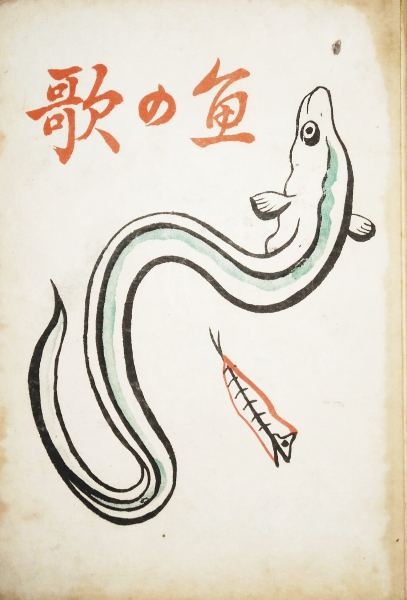 魚の歌